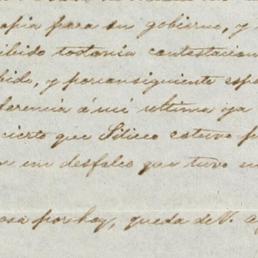 opia para su gobierno, y
cibido todavía contestacion
bido, y por consiguiente espe
ferencia á mi ultima ya
cierto que Silico estuvo p
un desfalco que tuvo
cosa por hoy, queda de V. a